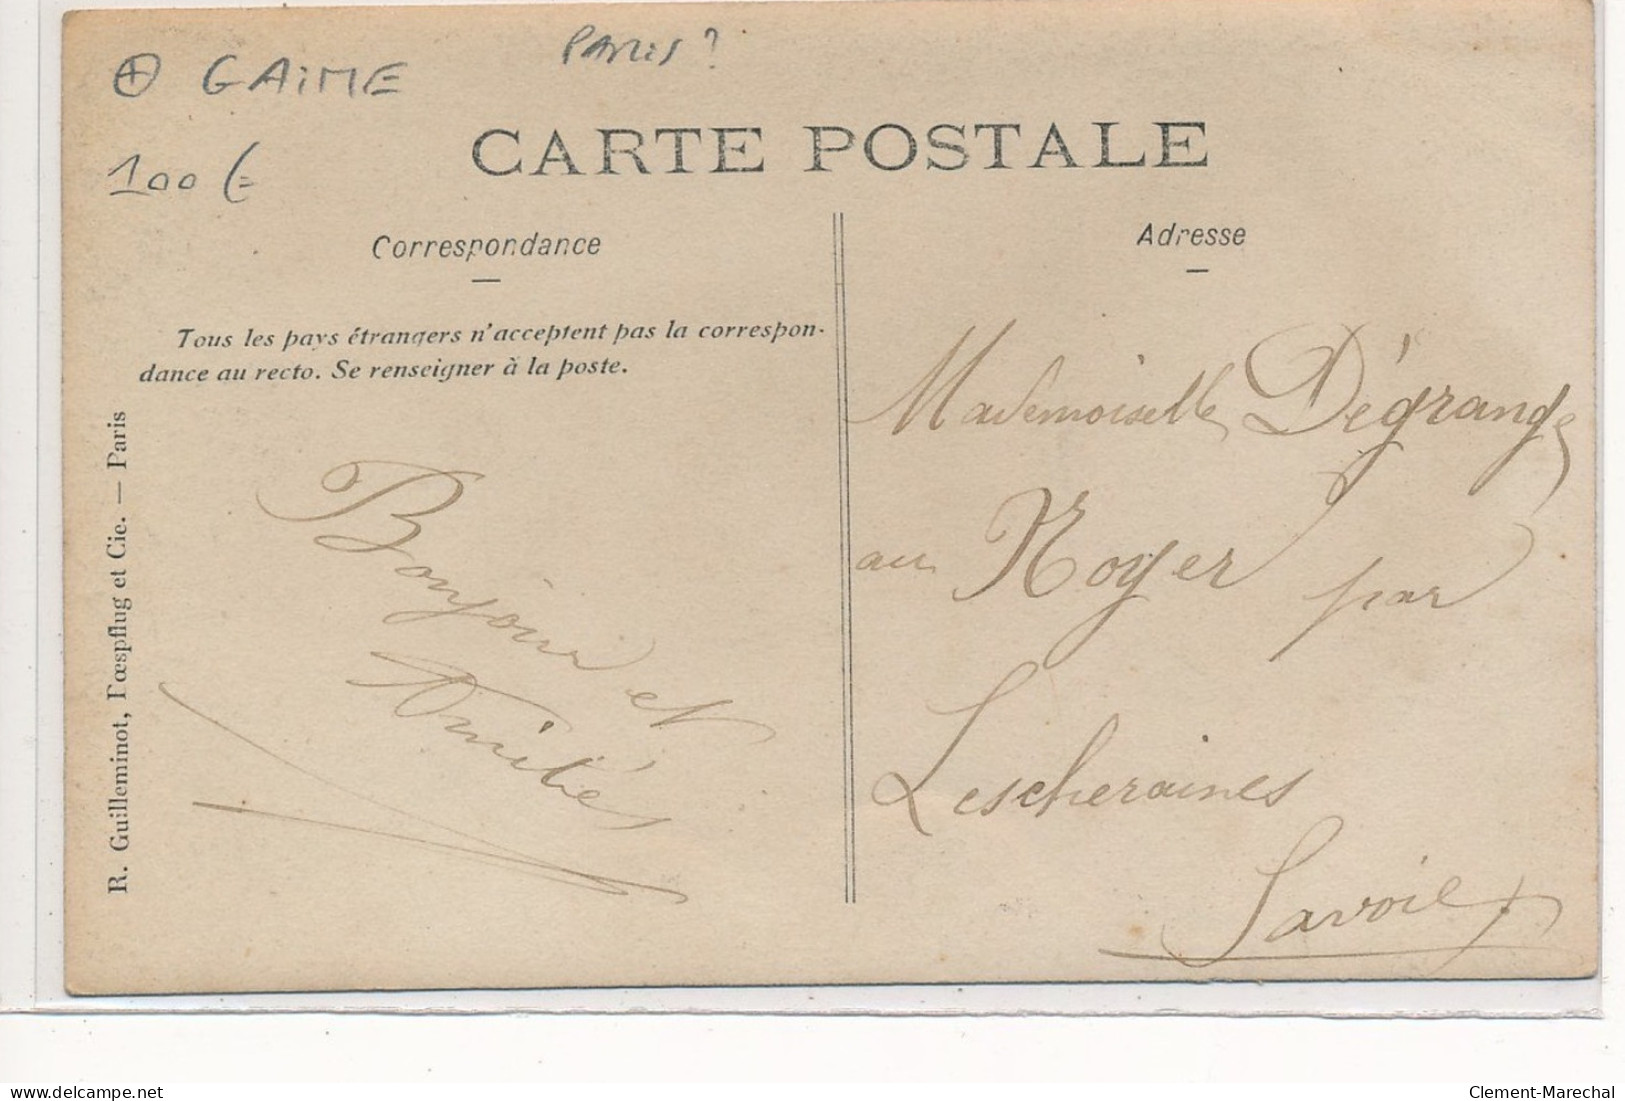 PARIS ?
⊕ GAIME
100 €
CARTE POSTALE
Correspondance
Tous les pays étrangers n'acceptent pas la correspon-
dance au recto. Se renseigner à la poste.
R. Guilleminot, Bœspflug et Cie. — Paris
Bonjour et
Amitiés
Adresse
Mademoiselle Dégrange
au Noyer par
Lescheraines
Savoie
delcampe.net
Clement-Marechal